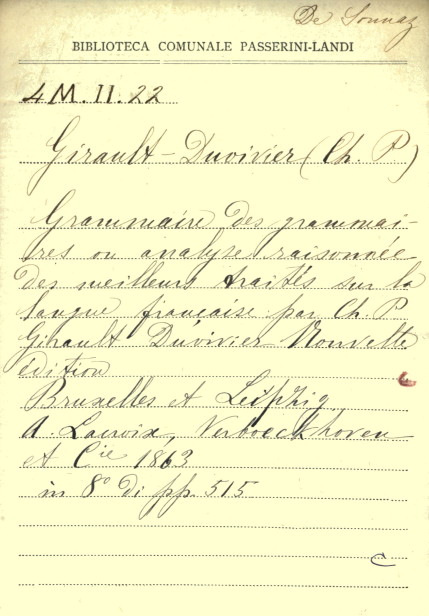 De Sonnaz
BIBLIOTECA COMUNALE PASSERINI-LANDI
4 M. II. 22
Girault-Duvivier (Ch. P.)
Grammaire des grammai-
res ou analyse raisonnée
des meilleurs traités sur la
langue française par Ch P
Girault Duvivier Nouvelle
édition
Bruxelles et Leipzig
A. Lacroix, Verboeckhoven
et Cie 1863
in 8° di pp. 515
C